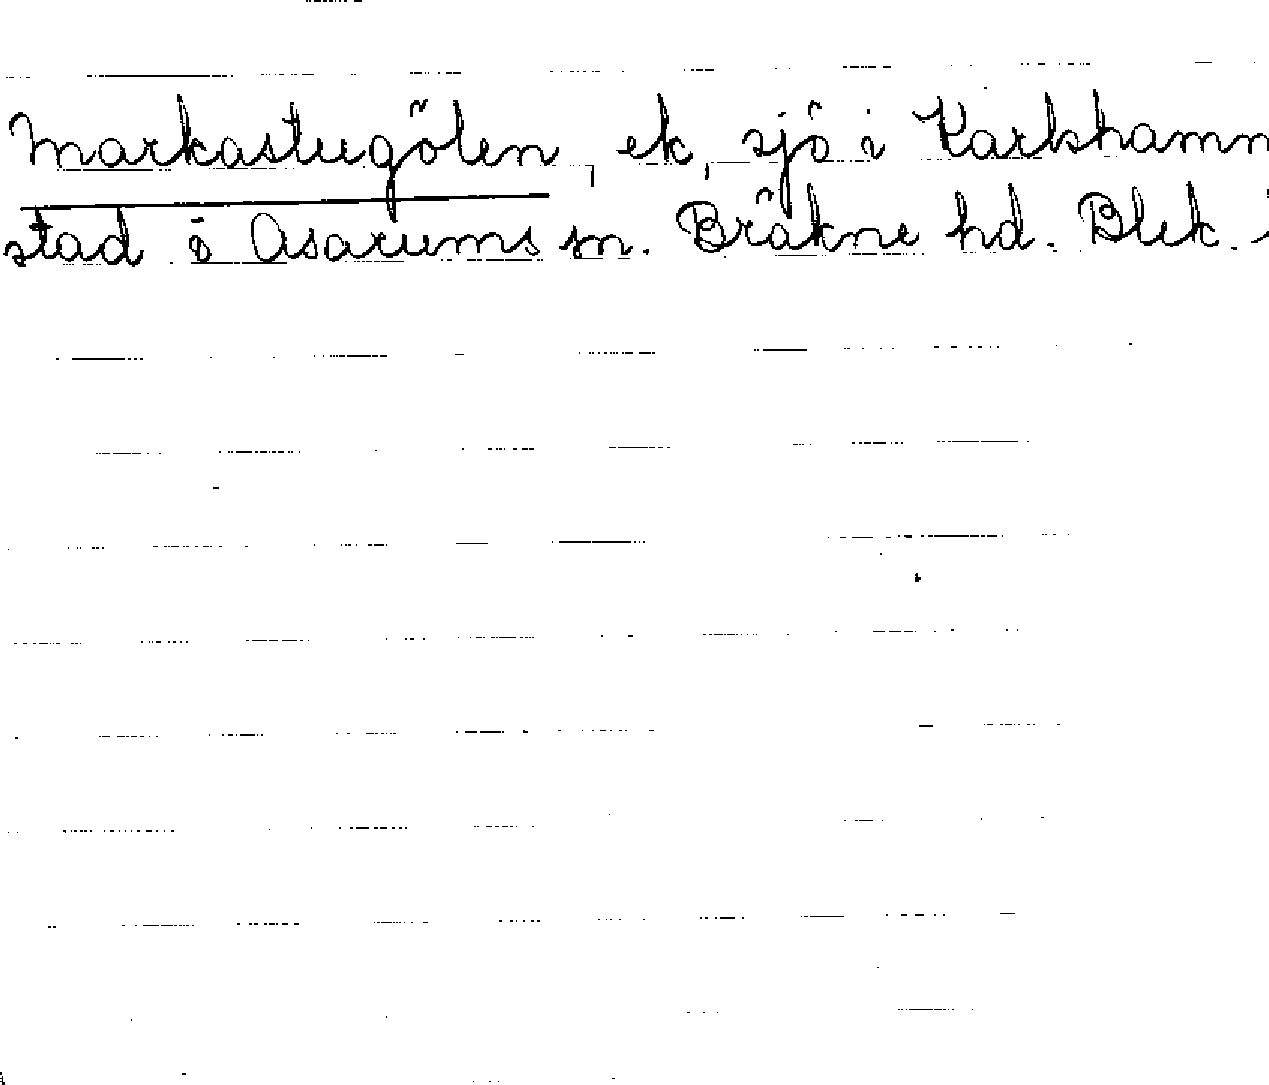 Markastugölen, ek, sjö i Karlshamn
stad o Asarums sn. Bräkne hd. Blek.